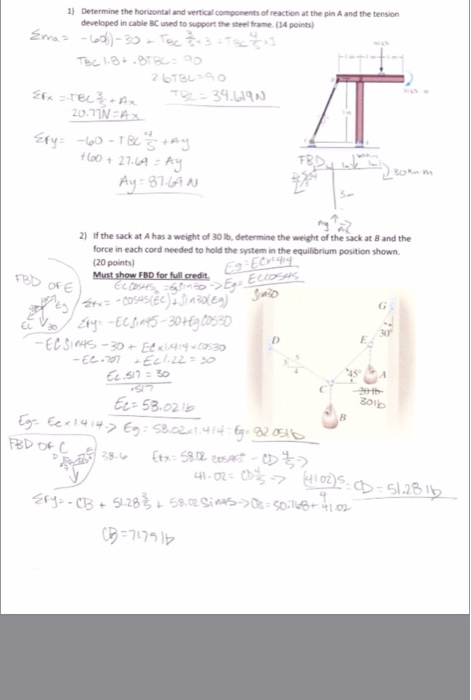 1) Determine the horizontal and vertical components of reaction at the pin A and the tension
developed in cable BC used to support the steel frame. (14 points)
Σma = -60(1)-30 + TBC 3/5 × 3 + TBC 4/5 × 1
TBC 1.8 + .8TBC = 90
2.6TBC = 90
TBC = 34.619N
Σfx = -TBC 3/5 + Ax
20.77N = Ax
Σfy = -60 - TBC 4/5 + Ay
+60 + 27.69 = Ay
Ay = 87.69 N
FBD
30kn·m
3m
2) If the sack at A has a weight of 30 lb, determine the weight of the sack at B and the
force in each cord needed to hold the system in the equilibrium position shown.
(20 points)
Must show FBD for full credit.
Eg = EC×1.414
EC cos45 = Eg sin30 -> Eg = EC cos45
Sin30
FBD OF E
Eg
EC
30
Σfx = -cos45(EC) + sin30(Eg)
Σfy = -EC sin45 - 30 + Eg cos30
-EC sin45 - 30 + EC×1.414×cos30
-EC .707 + EC 1.22 = 30
EC .517 = 30
.517
EC = 58.02 lb
Eg = EC×1.414 -> Eg = 58.02×1.414 = Eg = 82.05 lb
G
30°
E
D
45°
A
C
20 lb
30lb
B
FBD OF C
38.6
Σfx = 58.02 cos45 - CD 4/5 ->
41.02 = CD 4/5 -> (41.02)5 = CD = 51.28 lb
4
Σfy = -CB + 51.28 3/5 + 58.02 sin45 -> CB = 30.768 + 41.02
CB = 71.79 lb